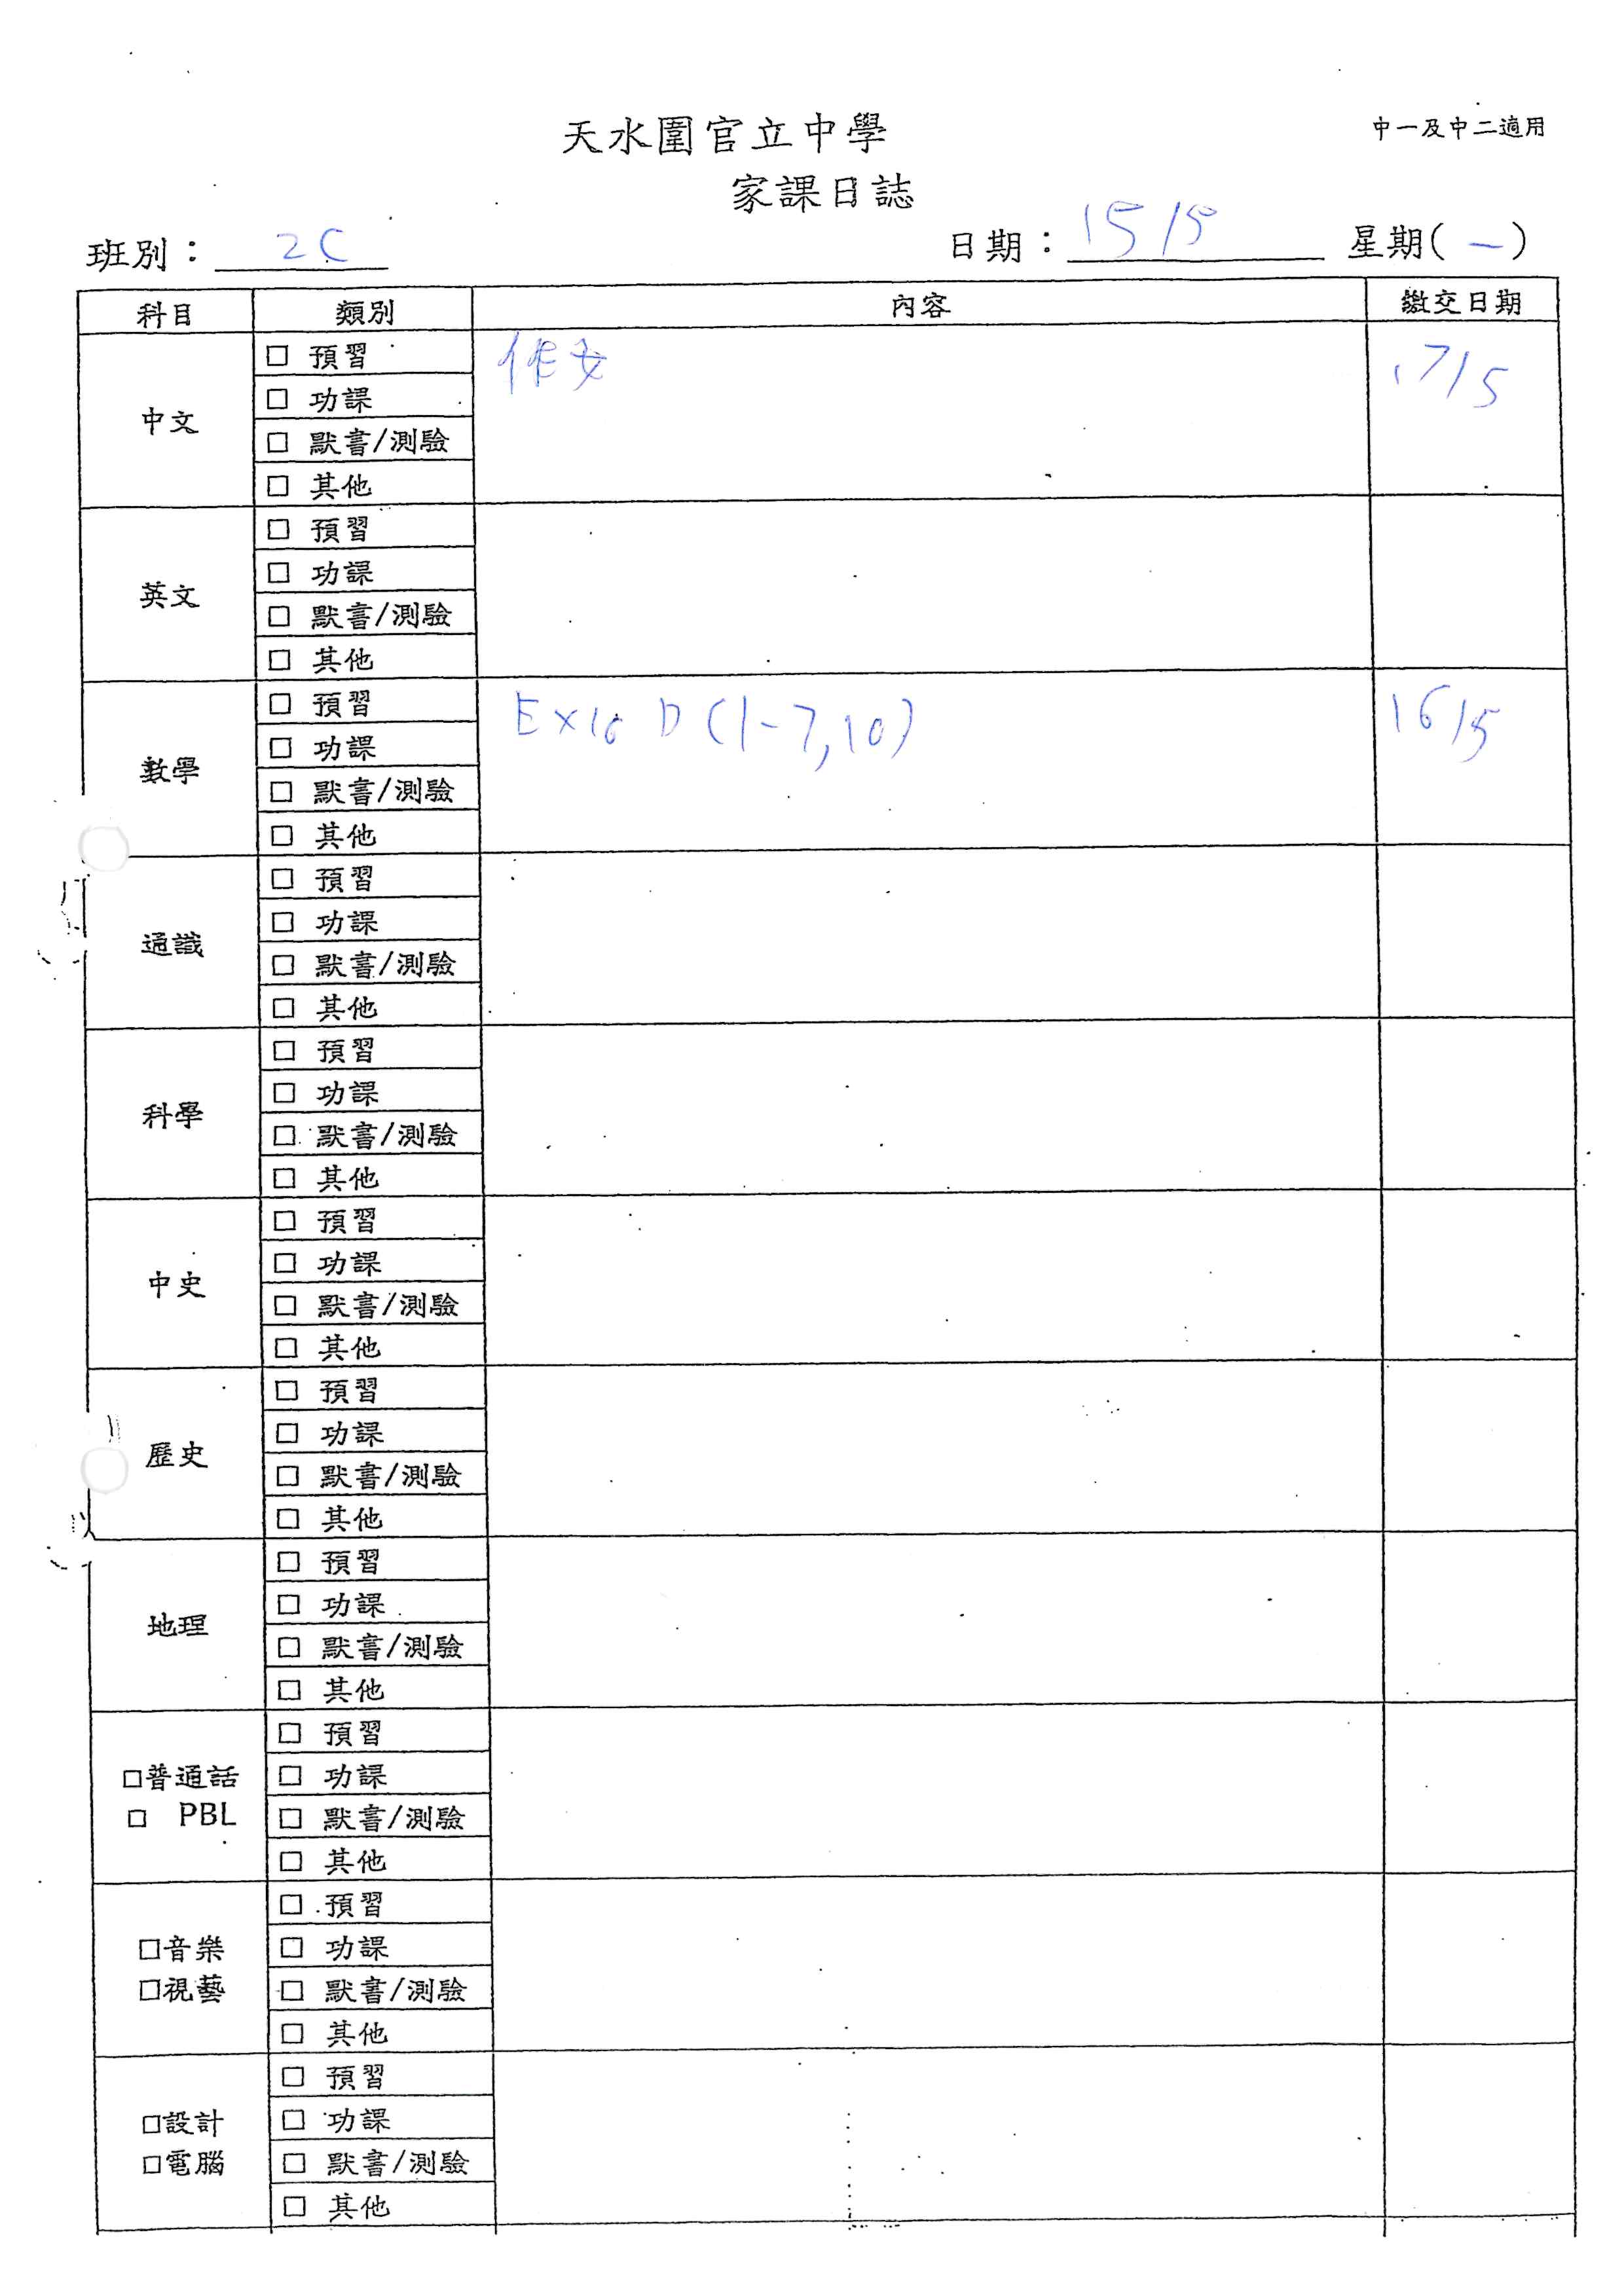 天水圍官立中學
中一及中二適用
家課日誌
班別： 2C 日期： 15/5 星期( 一 )
科目 類別 內容 繳交日期
中文
□ 預習 作文 17/5
□ 功課
□ 默書/測驗
□ 其他
英文
□ 預習
□ 功課
□ 默書/測驗
□ 其他
數學
□ 預習 Ex16 D (1-7,10) 16/5
□ 功課
□ 默書/測驗
□ 其他
通識
□ 預習
□ 功課
□ 默書/測驗
□ 其他
科學
□ 預習
□ 功課
□ 默書/測驗
□ 其他
中史
□ 預習
□ 功課
□ 默書/測驗
□ 其他
歷史
□ 預習
□ 功課
□ 默書/測驗
□ 其他
地理
□ 預習
□ 功課
□ 默書/測驗
□ 其他
□普通話
□ PBL
□ 預習
□ 功課
□ 默書/測驗
□ 其他
□音樂
□視藝
□ 預習
□ 功課
□ 默書/測驗
□ 其他
□設計
□電腦
□ 預習
□ 功課
□ 默書/測驗
□ 其他